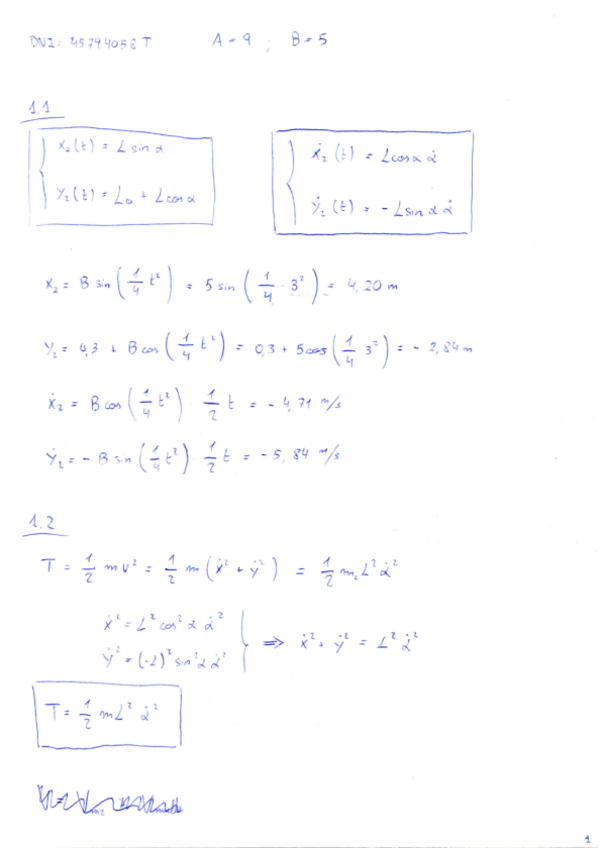 DNI: 45794056 T A = 9 ; B = 5
1.1
x₂(t) = L sin α
y₂(t) = L₀ + L cos α
ẋ₂(t) = L cos α α̇
ẏ₂(t) = - L sin α α̇
x₂ = B sin (1/4 t²) = 5 sin (1/4 · 3²) = 4,20 m
y₂ = 0,3 + B cos (1/4 t²) = 0,3 + 5 cos (1/4 3²) = - 2,84 m
ẋ₂ = B cos (1/4 t²) 1/2 t = - 4,71 m/s
ẏ₂ = - B sin (1/4 t²) 1/2 t = - 5,84 m/s
1.2
T = 1/2 m v² = 1/2 m (ẋ² + ẏ²) = 1/2 m₂ L² α̇²
ẋ² = L² cos² α α̇²
ẏ² = (-L)² sin² α α̇²
⇒ ẋ² + ẏ² = L² α̇²
T = 1/2 m L² α̇²
1